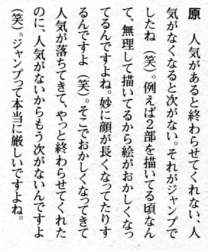 原　人気があると終わらせてくれない、人
気がなくなると次がない。それがジャンプで
したね（笑）。例えば2部を描いてる頃なん
て、無理して描いてるから絵がおかしくなっ
てるんですよね。妙に顔が長くなってたりす
るんですよ（笑）。そこでおかしくなってきて
人気が落ちてきて、やっと終わらせてくれた
のに、人気がないからもう次がないんですよ
（笑）。ジャンプって本当に厳しいですよね。